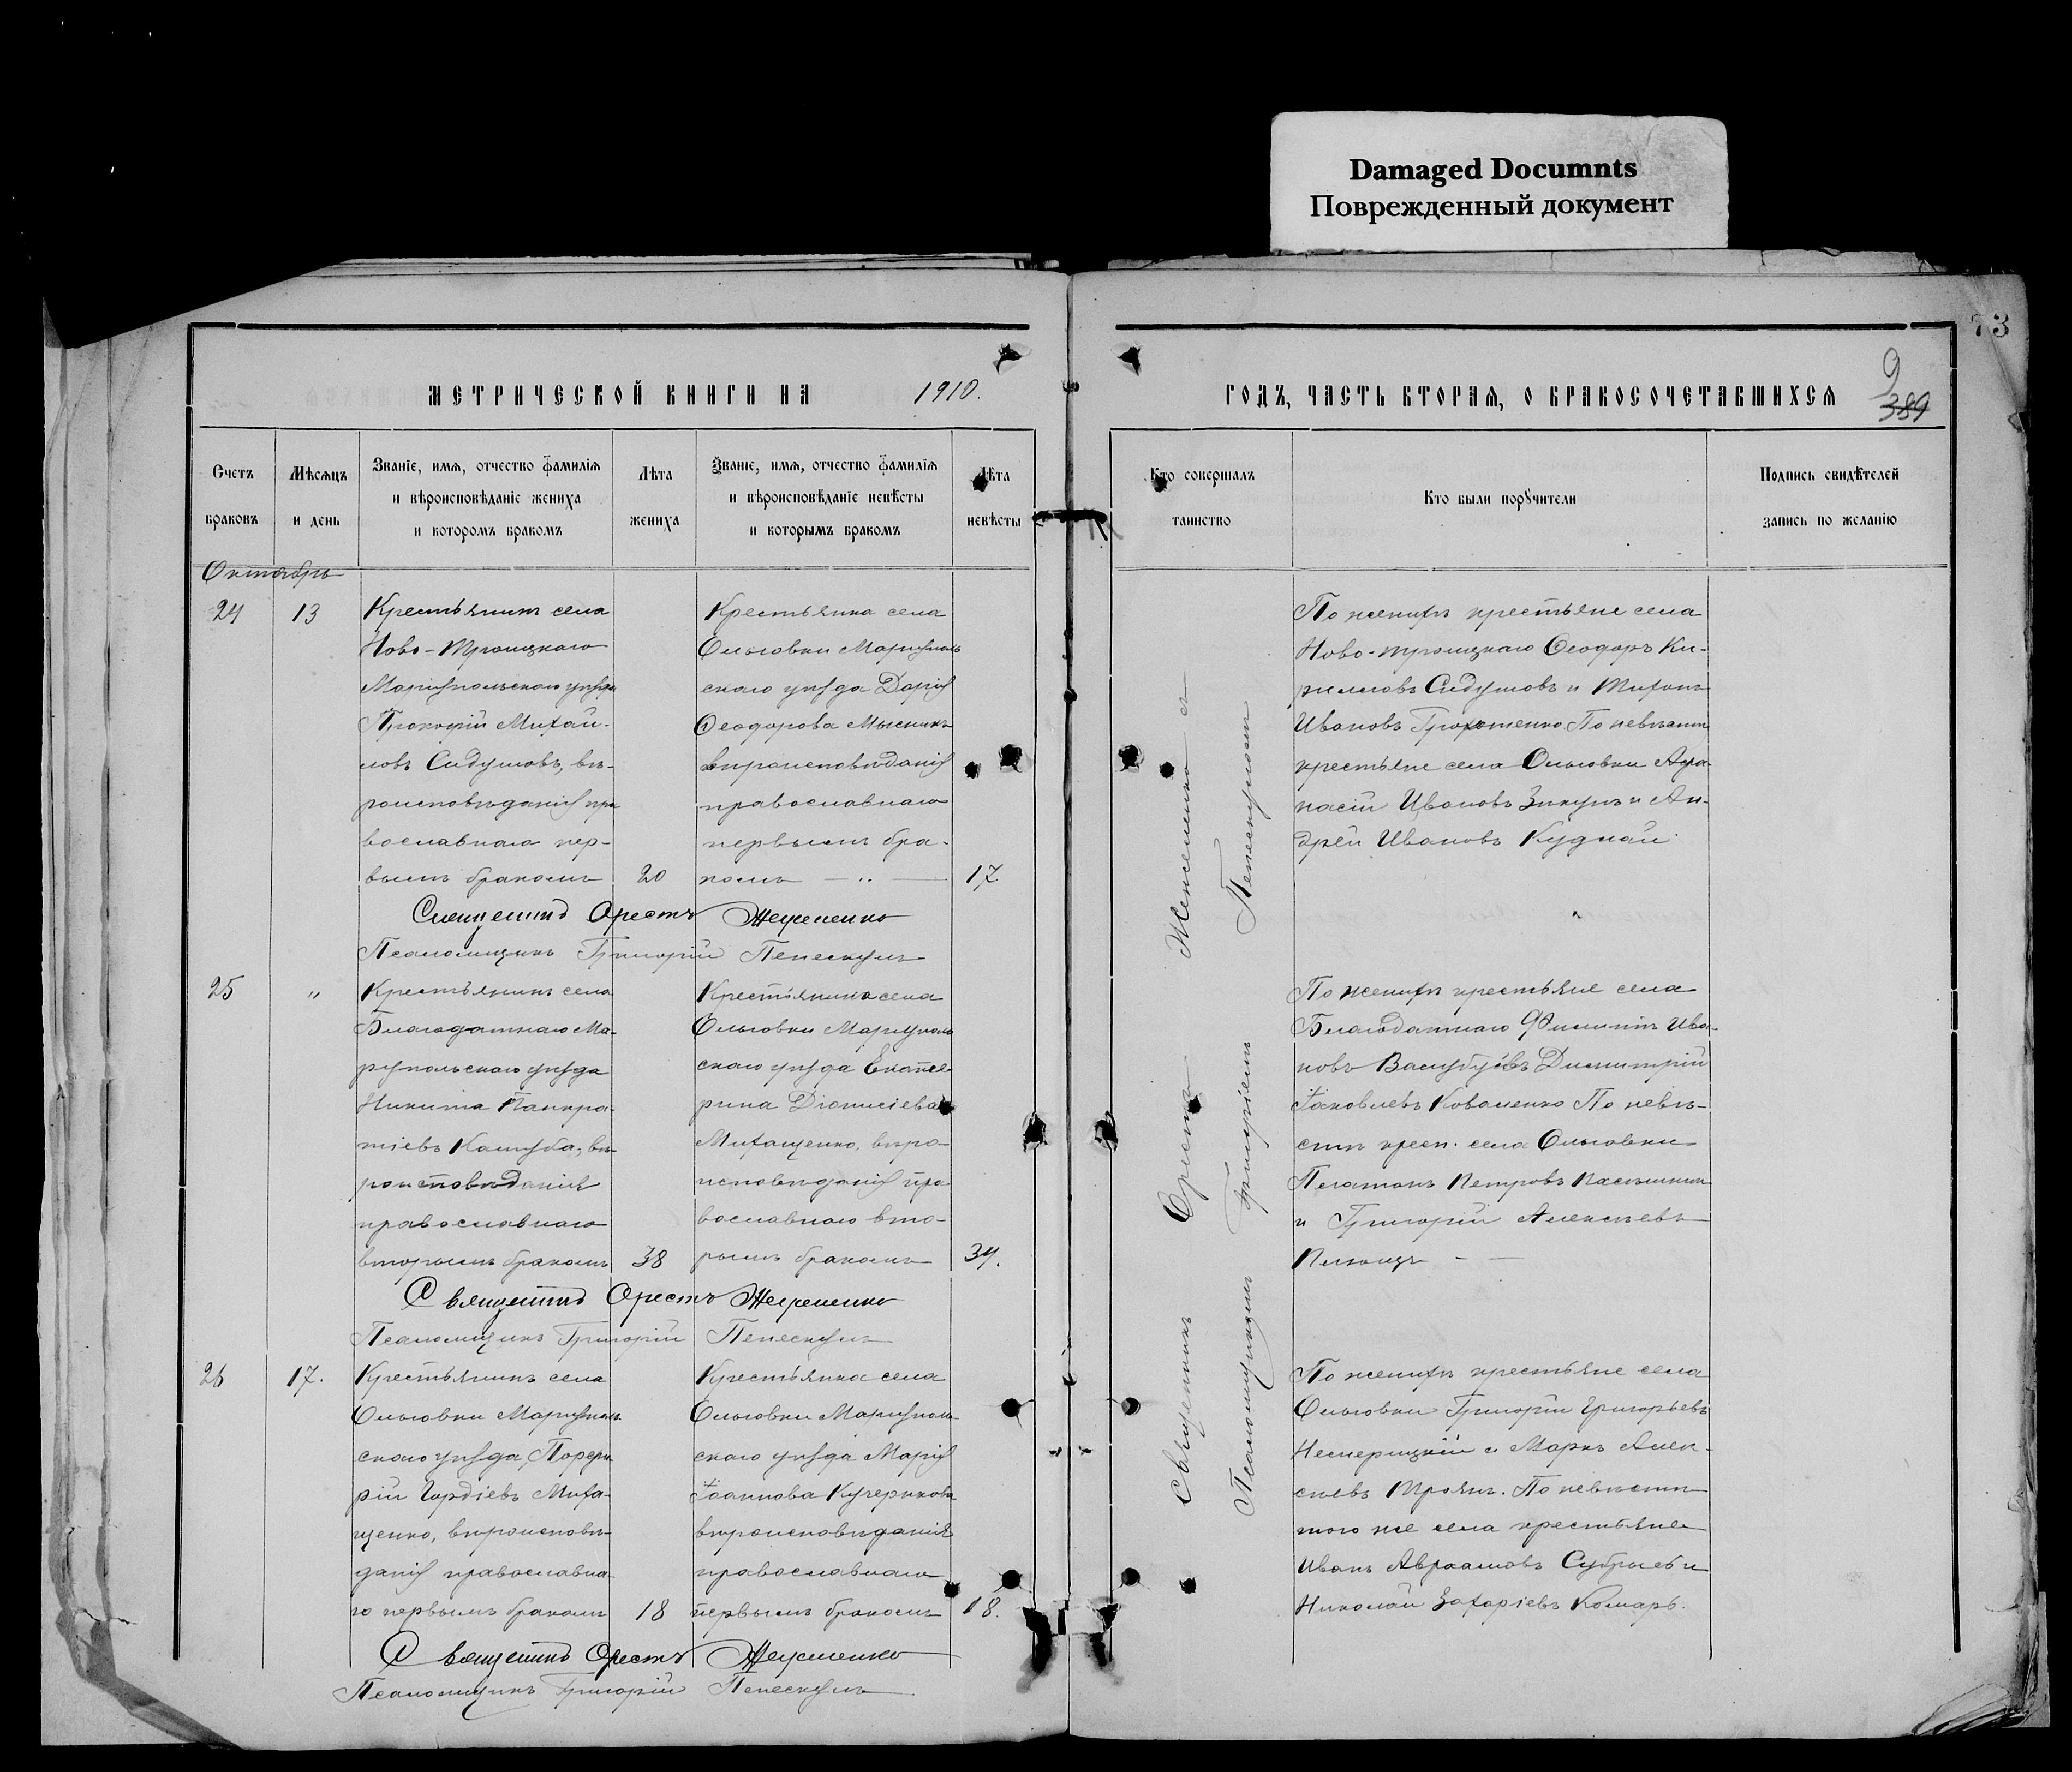 Damaged Documnts
Поврежденный документ
73
9
389
МЕТРИЧЕСКОЙ КНИГИ НА 1910.
ГОДЪ, ЧАСТЬ ВТОРАЯ, О БРАКОСОЧЕТАВШИХСЯ
Счетъ браковъ
Мѣсяцъ и день
Званіе, имя, отчество фамилія
и вѣроисповѣданіе жениха
и которомъ бракомъ
Лѣта жениха
Званіе, имя, отчество фамилія
и вѣроисповѣданіе невѣсты
и которымъ бракомъ
Лѣта невѣсты
Кто совершалъ таинство
Кто были порꙋчители
Подпись свидѣтелей
запись по желанію
Октябрь
24
13
Крестьянинъ села
Ново-Троицкаго
Маріупольскаго уѣзда
Прокофій Михаи-
ловъ Садуловъ, вѣ-
роисповѣданія пра
вославнаго пер-
вымъ бракомъ
20
Крестьянка села
Ольговки Маріуполь
скаго уѣзда Дарія
Ѳеодорова Мысникъ
вѣроисповѣданія
православнаго
первымъ бра-
комъ — „ —
17
Священникъ Орестъ
Псаломщикъ Григорій Пепескулъ
По женихѣ крестьяне села
Ново-троицкаго Ѳеодоръ Ки-
рилловъ Садуловъ и Тихонъ
Ивановъ По невѣстѣ
крестьяне села Ольговки Аѳа-
насій Ивановъ Зикунъ и Ан-
дрей Ивановъ Кудлай
25
„
Крестьянинъ села
Благодатнаго Ма-
ріупольскаго уѣзда
Никита Панкра-
тіевъ Кашуба, вѣ-
роисповѣданія
православнаго
вторымъ бракомъ
38
Крестьянка села
Ольговки Маріуполь
скаго уѣзда Екате-
рина Діонисіева
Михащенко, вѣро-
исповѣданія пра-
вославнаго вто-
рымъ бракомъ
34.
Священникъ Орестъ
Псаломщикъ Григорій Пепескулъ
По женихѣ крестьяне села
Благодатнаго Филиппъ Ива-
новъ Димитрій
Іаковлевъ Коваленко По невѣ-
стѣ крест. села Ольговки
Платонъ Петровъ
и Григорій Алексѣевъ
26
17.
Крестьянинъ села
Ольговки Маріуполь
скаго уѣзда, Порфи
рій Гордіевъ Миха-
щенко, вѣроисповѣ-
данія православна-
го первымъ бракомъ
18
Крестьянка села
Ольговки Маріуполь-
скаго уѣзда Марія
Іоаннова Кучерикова
вѣроисповѣданія
православнаго
первымъ бракомъ
18.
Священникъ Орестъ
Псаломщикъ Григорій Пепескулъ
По женихѣ крестьяне села
Ольговки Григорій Григорьевъ
и Маркъ Алек-
сѣевъ Троянъ. По невѣстѣ
того же села крестьяне
Иванъ Авраамовъ и
Николай Захаріевъ Комаръ.
Священникъ Орестъ
Псаломщикъ Григорій Пепескулъ